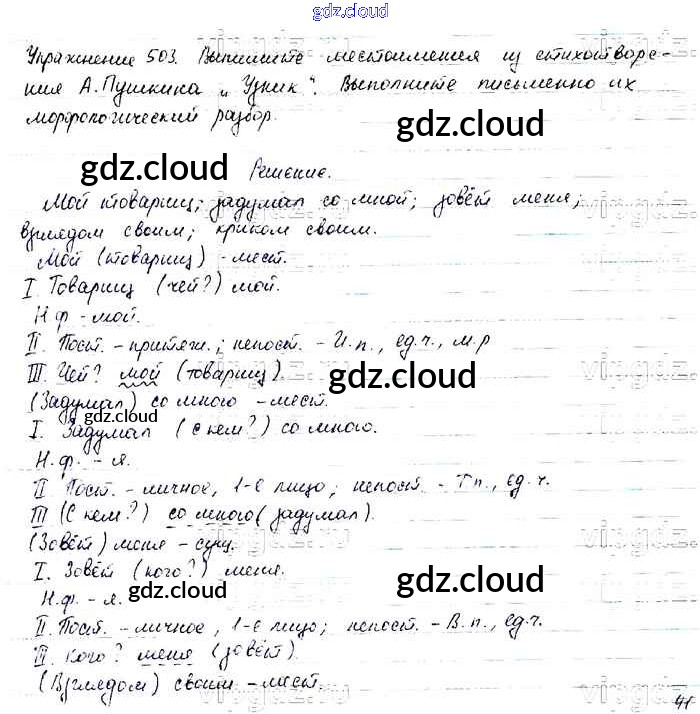 gdz.cloud
Упражнение 503. Выпишите местоимения из стихотворе-
ния А. Пушкина „Узник“. Выполните письменно их
морфологический разбор.
gdz.cloud
gdz.cloud
Решение.
Мой товарищ; задумал со мной; зовёт меня;
взглядом своим; криком своим.
Мой (товарищ) - мест.
I Товарищ (чей?) мой.
Н.ф - мой.
II. Пост. - притяж.; непост. - И.п., ед.ч., м.р
III. Чей? мой (товарищ).
gdz.cloud
(Задумал) со мною - мест.
gdz.cloud
I. Задумал (с кем?) со мною.
Н.ф. - я.
II Пост. - личное, 1-е лицо; непост. - Т п., ед.ч.
III (С кем?) со мною (задумал).
(Зовёт) меня - сущ.
I. Зовёт (кого?) меня.
gdz.cloud
gdz.cloud
Н.ф. - я.
II. Пост. - личное, 1-е лицо; непост. - В.п., ед.ч.
III. Кого? меня (зовёт).
(Взглядом) своим - мест.
41